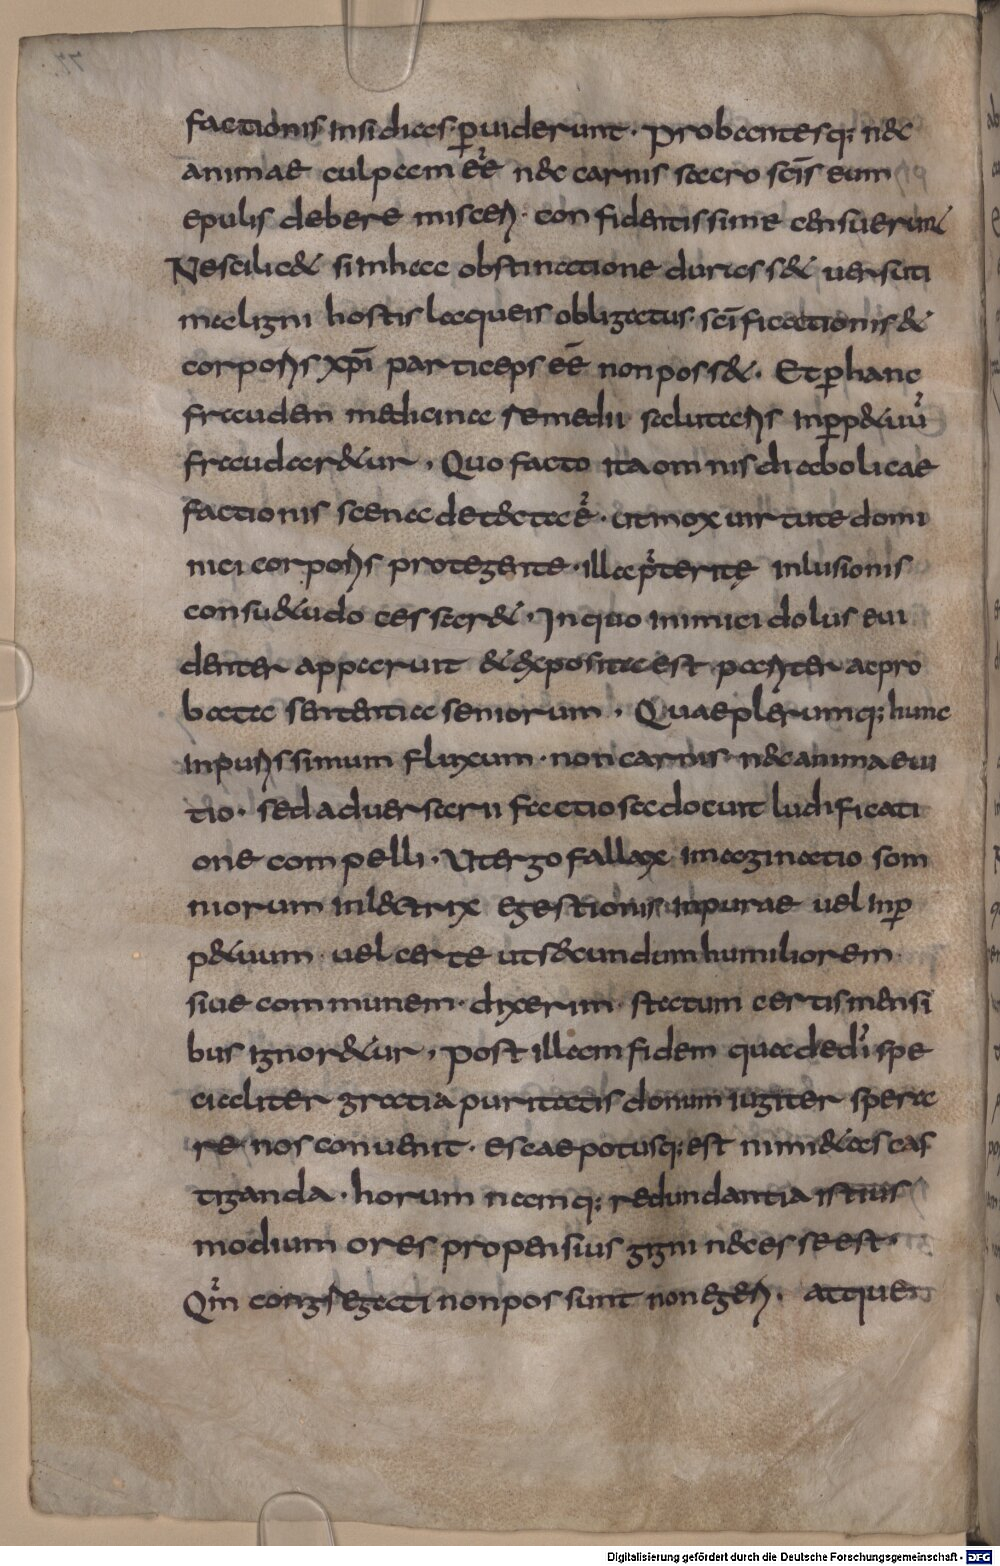 factionis insidias p̲uiderunt · probantesq; nec
animae culpam eē nec carnis sacro scīs eum
epulis debere misceri · confidentissime censuerunt
Nescilicet si in hac obstinatione durasset uersuti
maligni hostis laqueis obligatus scīficationis et
corporis xp̄i particeps eē non posset · Et p̲ hanc
fraudem medicinae remedii salutaris in p̲petuū
fraudaretur · Quo facto ita omnis diabolicae
factionis scena detecta ē · ut mox uirtute domi
nici corporis protegente · illa p̄terite inlusionis
consuetudo cessaret · In quo inimici dolus eui
denter apparuit et exposita est pariter ac pro
bata sententia seniorum · Quae plerumq; hunc
inpurissimum fluxum · non carnis nec animae ui
tio · sed aduersarii factiosa docuit ludificati
one compelli · Ut ergo fallax imaginatio som
niorum inlectrix egestionis inpurae uel in p̲
petuum uel certe ut secundum humiliorem
siue communem · dixerim · statum certis mensi
bus ignoretur · post illam fidem qua dedī spe
cialiter gratia puritatis donum iugiter spera
re nos conuenit · escae potusq; est nimietas cas
tiganda · horum namq; redundantia istius
modi umores propensius gigni necesse est ·
Qm̄ congregati non possunt non egeri · atque